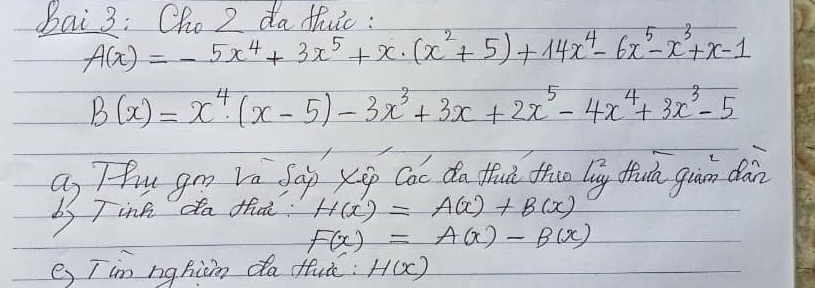 Bài 3: Cho 2 đa thức:
A(x) = - 5x⁴ + 3x⁵ + x.(x² + 5) + 14x⁴ - 6x⁵ - x³ + x - 1
B(x) = x⁴.(x - 5) - 3x³ + 3x + 2x⁵ - 4x⁴ + 3x³ - 5
a) Thu gọn và sắp xếp các đa thức theo lũy thừa giảm dần
b) Tính đa thức: H(x) = A(x) + B(x)
F(x) = A(x) - B(x)
c) Tìm nghiệm đa thức: H(x)